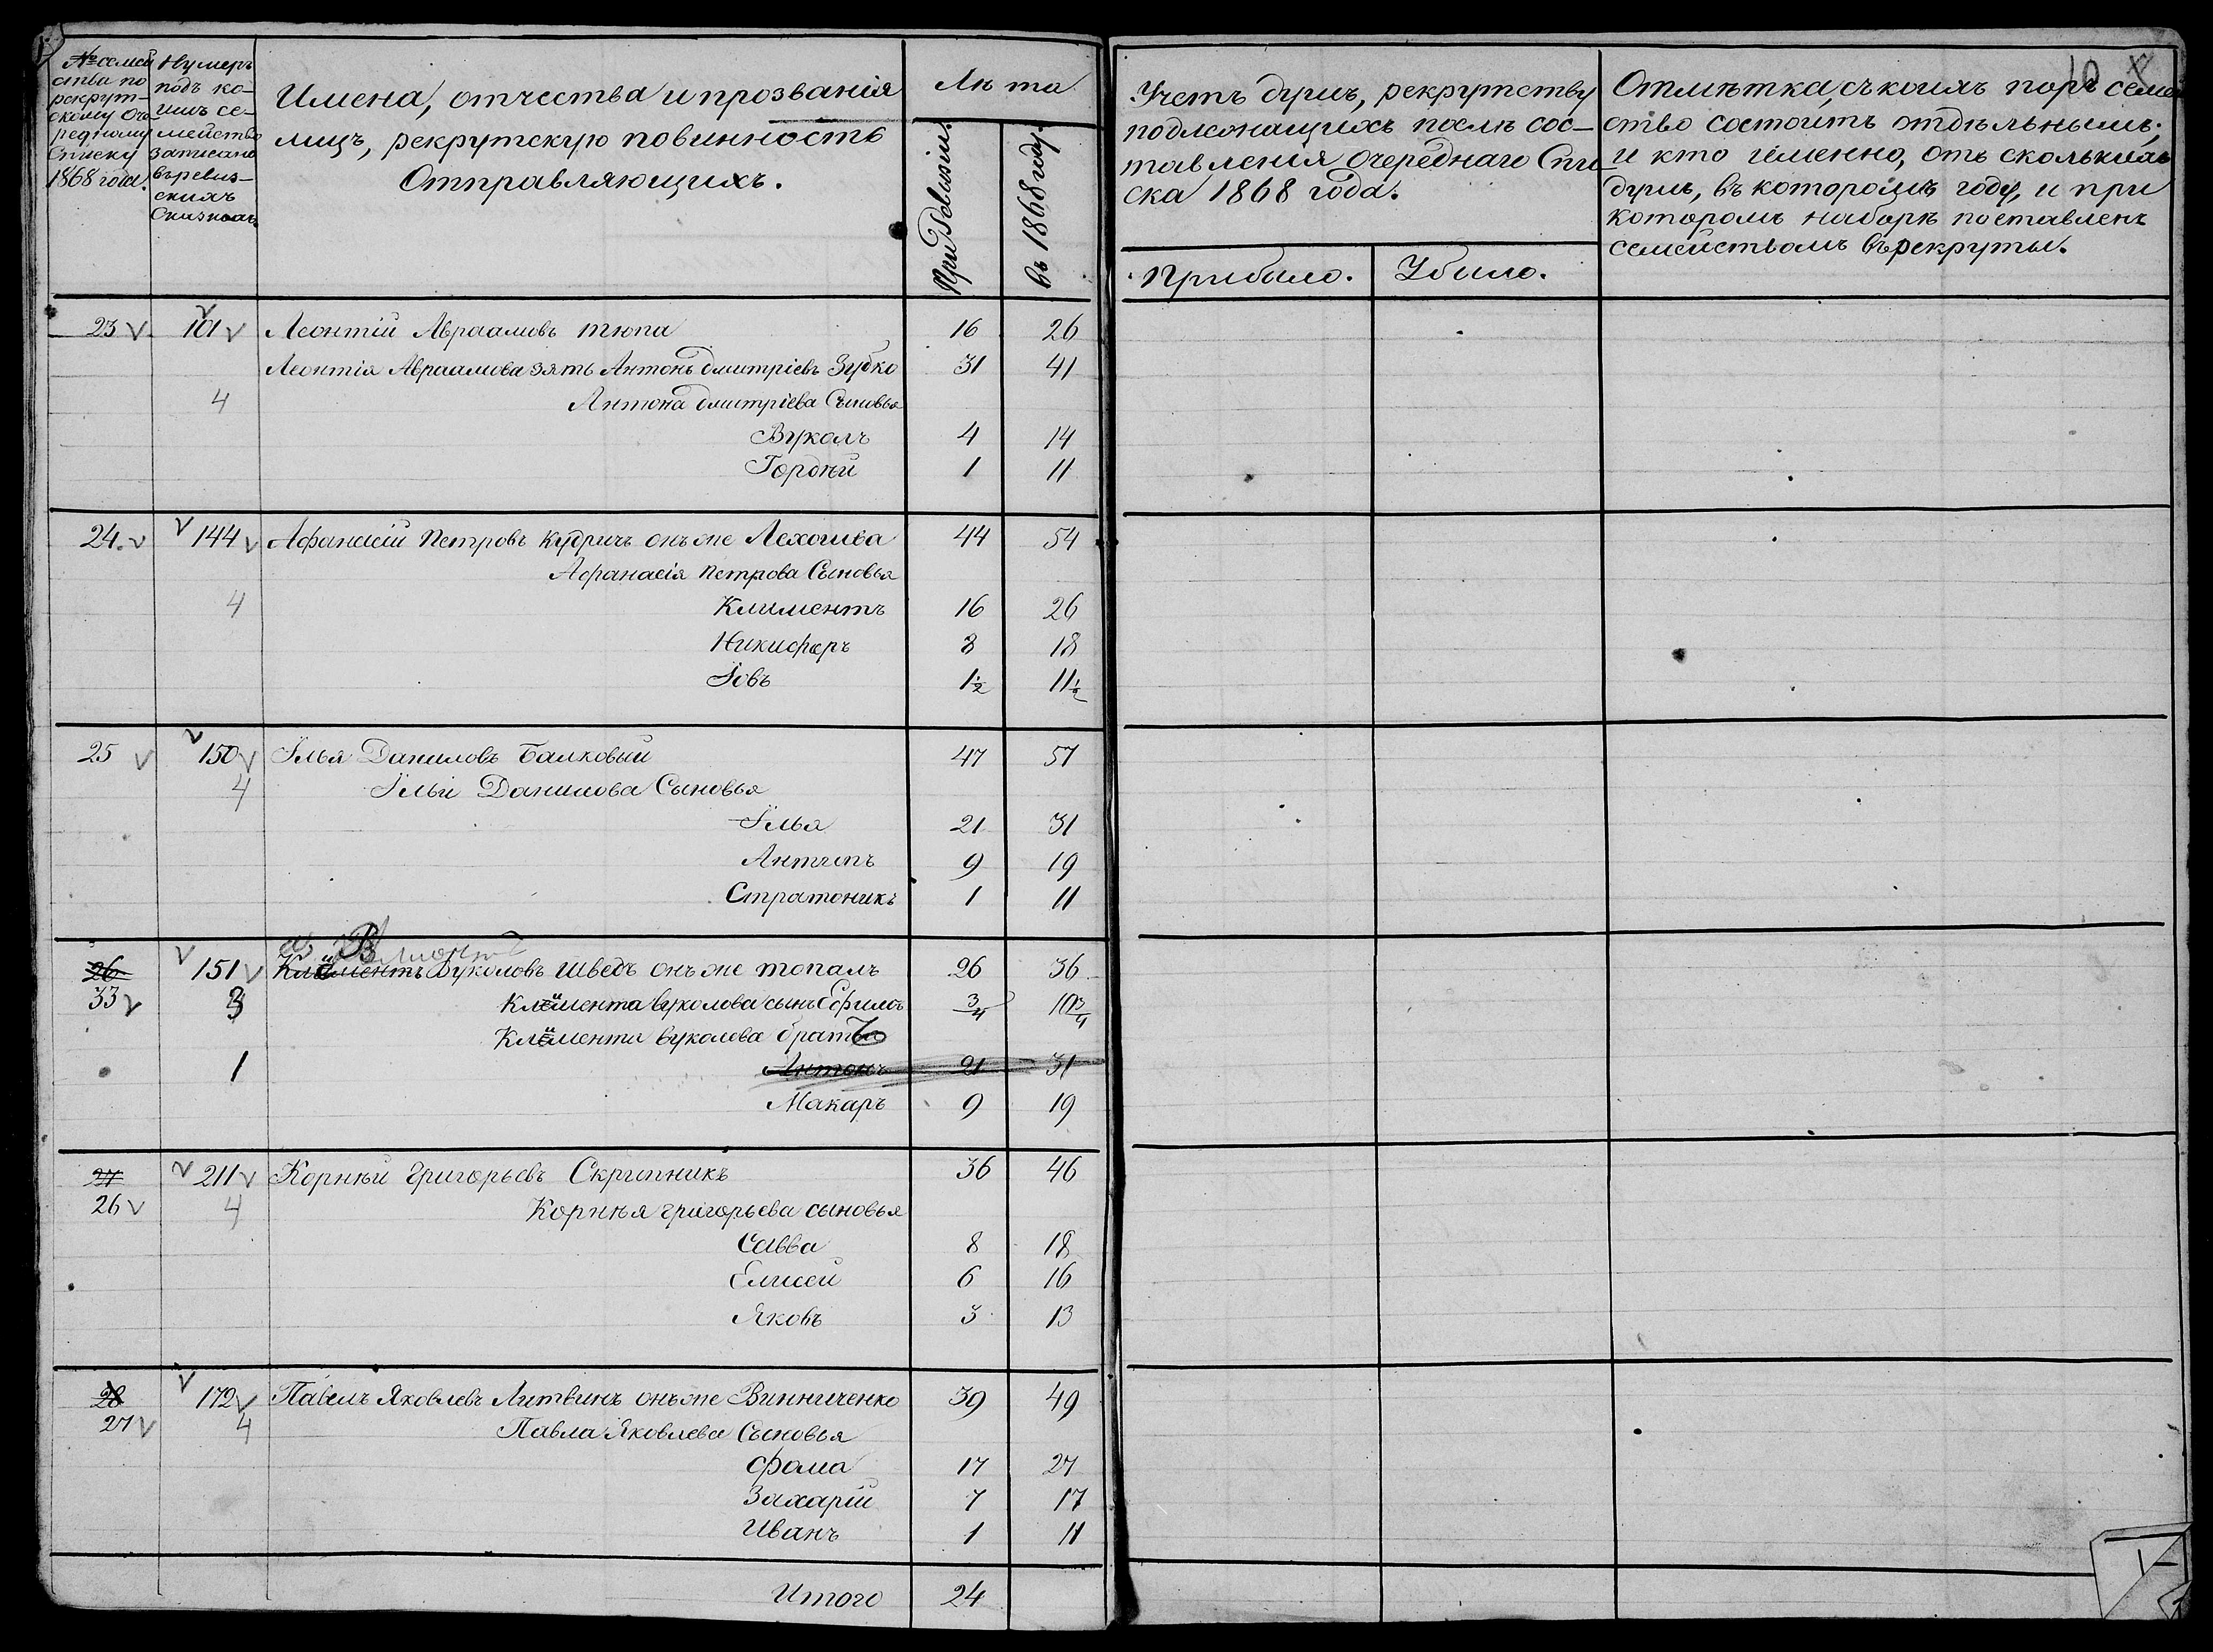 № семей
ства по
рекрут-
скому Оче
редному
Списку
1868 года.
Нумеръ
подъ ко-
имъ се-
мейство
записано
въ ревиз-
скихъ
Сказкахъ.
Имена, отчества и прозванія
лицъ, рекрутскую повинность
Отправляющихъ.
Лѣта
При Ревизіи.
въ 1868 году.
Учетъ душъ, рекрутству
подлежащихъ послѣ сос-
тавленія Очереднаго Спи
ска 1868 года.
Прибыло.
Убыло.
10
Отмѣтка, съ коихъ поръ семей
ство состоитъ отдѣльнымъ;
и кто именно, отъ сколькихъ
душъ, въ которомъ году, и при
которомъ наборѣ поставленъ
семействомъ въ рекруты.
23 101 Леонтій Авраамовъ Тюпа 16 26
Леонтія Авраамова зять Антонъ Дмитріевъ Зубко 31 41
4 Антона Дмитріева Сыновья
Вуколъ 4 14
Гордѣй 1 11
24. 144 Афанасій Петровъ Кудричъ онъ же Лехошва 44 54
Афанасія Петрова Сыновья
4 Климентъ 16 26
Никифоръ 8 18
Іовъ 1½ 11½
25 150 Илья Даниловъ Балковый 47 57
4 Ильи Данилова Сыновья
Илья 21 31
Антипъ 9 19
Стратоникъ 1 11
26 151 Климентъ Вуколовъ Шведъ онъ же Топалъ 26 36
33 3 Климента Вуколова сынъ Ефимъ ¾ 10¾
Климента Вуколова братъ
1 Антонъ 21 31
Макаръ 9 19
27 211 Корнѣй Григорьевъ Скрипникъ 36 46
26 4 Корнѣя Григорьева сыновья
Савва 8 18
Елисей 6 16
Яковъ 3 13
28 172 Павелъ Яковлевъ Литвинъ онъ же Винниченко 39 49
27 4 Павла Яковлева Сыновья
Фома 17 27
Захарій 7 17
Иванъ 1 11
Итого 24